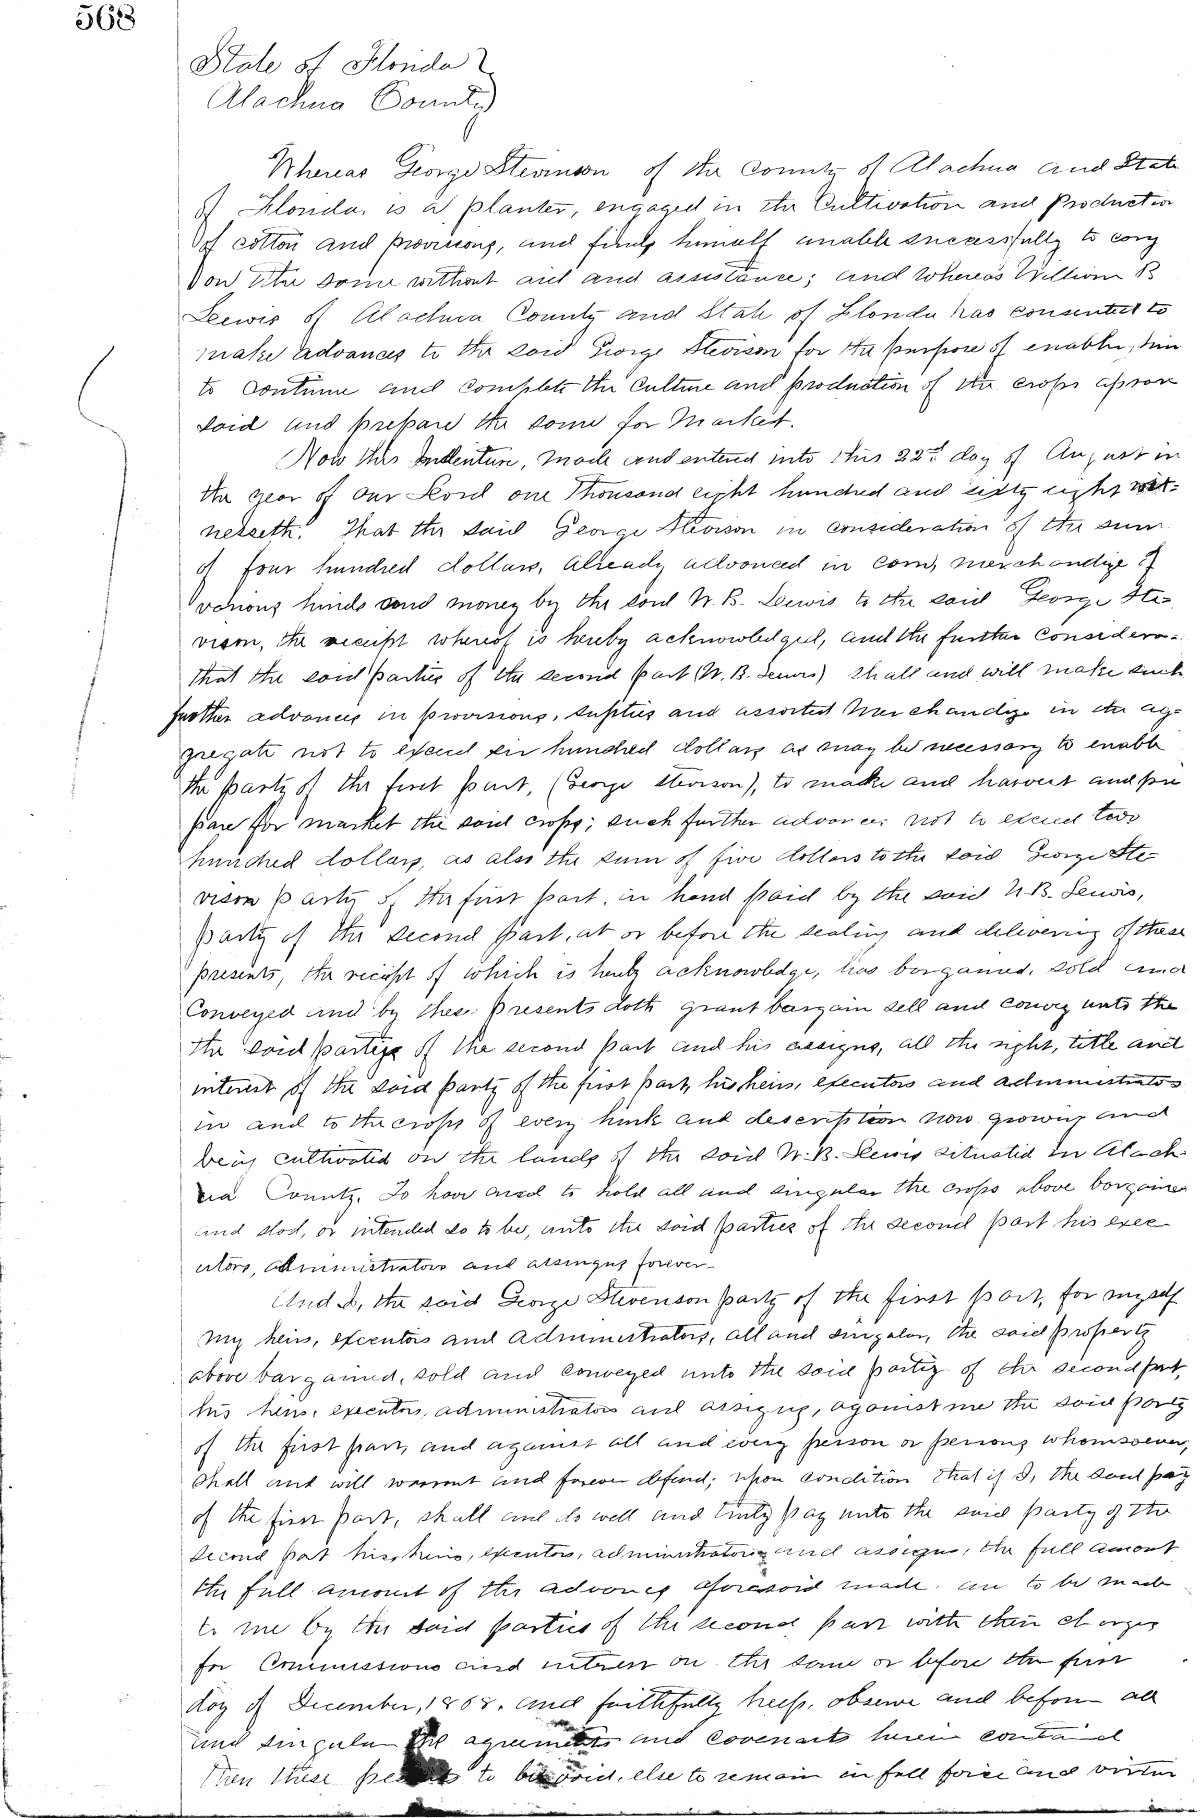 568
State of Florida }
Alachua County }
Whereas George Stevinson of the County of Alachua and State
of Florida, is a planter, engaged in the Cultivation and Production
of cotton and provisions, and finds himself unable successfully to cary
on the same without aid and assistance; and whereas William B
Leewis of Alachua County and State of Florida has consented to
make advances to the said George Stevison for the purpose of enable, him
to continue and complete the culture and production of the crops afore
said and prepare the same for Market.
Now this Indenture, made and entered into this 22nd day of August in
the year of our Lord one Thousand eight hundred and sixty eight wit-
nesseth: That the said George Stevison in consideration of the sum
of four hundred dollars, already advanced in corn, merchandize of
various kinds and money by the said W. B. Leewis to the said George Ste-
vison, the receipt whereof is hereby acknowledged, and the further considera-
that the said parties of the second part (W. B. Lewis) shall and will make such
further advances in provisions, supplies and assorted Merchandize in the ag-
gregate not to exceed six hundred dollars as may be necessary to enable
the party of the first part, (George Stevison), to make and harvest and pre
pare for market the said crops; such further advances not to exceed two
hundred dollars, as also the sum of five dollars to the said George Ste-
vison party of the first part, in hand paid by the said W. B. Lewis,
party of the second part, at or before the sealing and delivering of these
presents, the receipt of which is hereby acknowledge, has bargained, sold and
Conveyed and by these presents doth grant bargain sell and convey unto the
the said parties of the second part and his assigns, all the right, title and
interest of the said party of the first part, his heirs, executors and administrators
in and to the crops of every kink and description now growing and
being cultivated on the lands of the said W. B. Leewis situated in Alach-
ua County. To have and to hold all and singular the crops above bargained
and slod, or intended so to be, unto the said parties of the second part his exec
utors, administrators and assingns forever-
And I, the said George Stevenson party of the first part, for myself
my heirs, executors and administrators, all and singular, the said property
above bargained, sold and conveyed unto the said party of the second part,
his heirs, executors, administrators and assigns, against me the said party
of the first part, and against all and every person or persons whomsoever,
shall and will warrant and forever defend; upon condition that if I, the said pay
of the first part, shall and do well and truly pay unto the said party of the
second part his heirs, executors, administrators and assigns, the full amont
the full amount of the advances aforesaid made an to be made
to me by the said parties of the second part with their charges
for Commissions and interest on the same or before the first
day of December, 1868. and faithfully keep, observe and beform all
and singular the agreements and covenants herein contained
Then these presents to be void, else to remain in full force and virtue